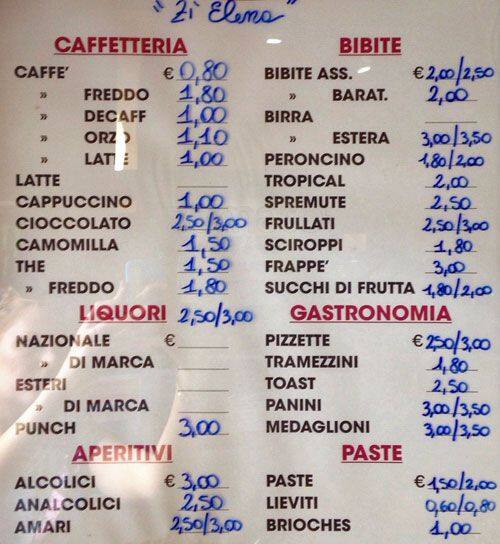 "Zi' Elena"
CAFFETTERIA
CAFFE' € 0,80
» FREDDO 1,80
» DECAFF 1,00
» ORZO 1,10
» LATTE 1,00
LATTE
CAPPUCCINO 1,00
CIOCCOLATO 2,50/3,00
CAMOMILLA 1,50
THE 1,50
» FREDDO 1,80
LIQUORI 2,50/3,00
NAZIONALE €
» DI MARCA
ESTERI
» DI MARCA
PUNCH 3,00
APERITIVI
ALCOLICI € 3,00
ANALCOLICI 2,50
AMARI 2,50/3,00
BIBITE
BIBITE ASS. € 2,00/2,50
» BARAT. 2,00
BIRRA
» ESTERA 3,00/3,50
PERONCINO 1,80/2,00
TROPICAL 2,00
SPREMUTE 2,50
FRULLATI 2,50/3,00
SCIROPPI 1,80
FRAPPE' 3,00
SUCCHI DI FRUTTA 1,80/2,00
GASTRONOMIA
PIZZETTE € 2,50/3,00
TRAMEZZINI 1,80
TOAST 2,50
PANINI 3,00/3,50
MEDAGLIONI 3,00/3,50
PASTE
PASTE € 1,50/2,00
LIEVITI 0,60/0,80
BRIOCHES 1,00